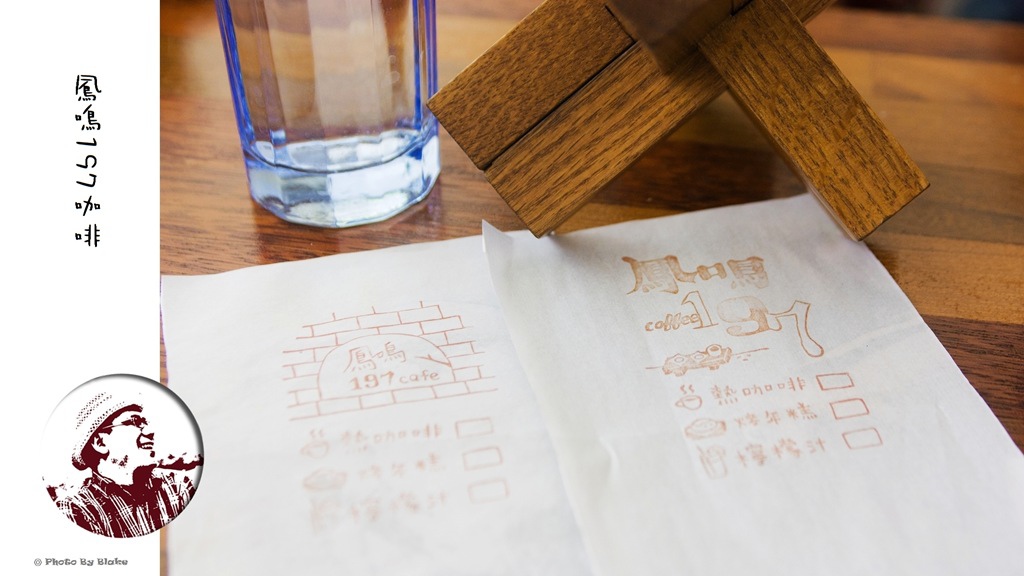 鳳鳴197咖啡
© Photo By Blake
鳳鳴
197 cafe
熱咖啡
烤年糕
檸檬汁
鳳鳴
coffee 197
熱咖啡
烤年糕
檸檬汁